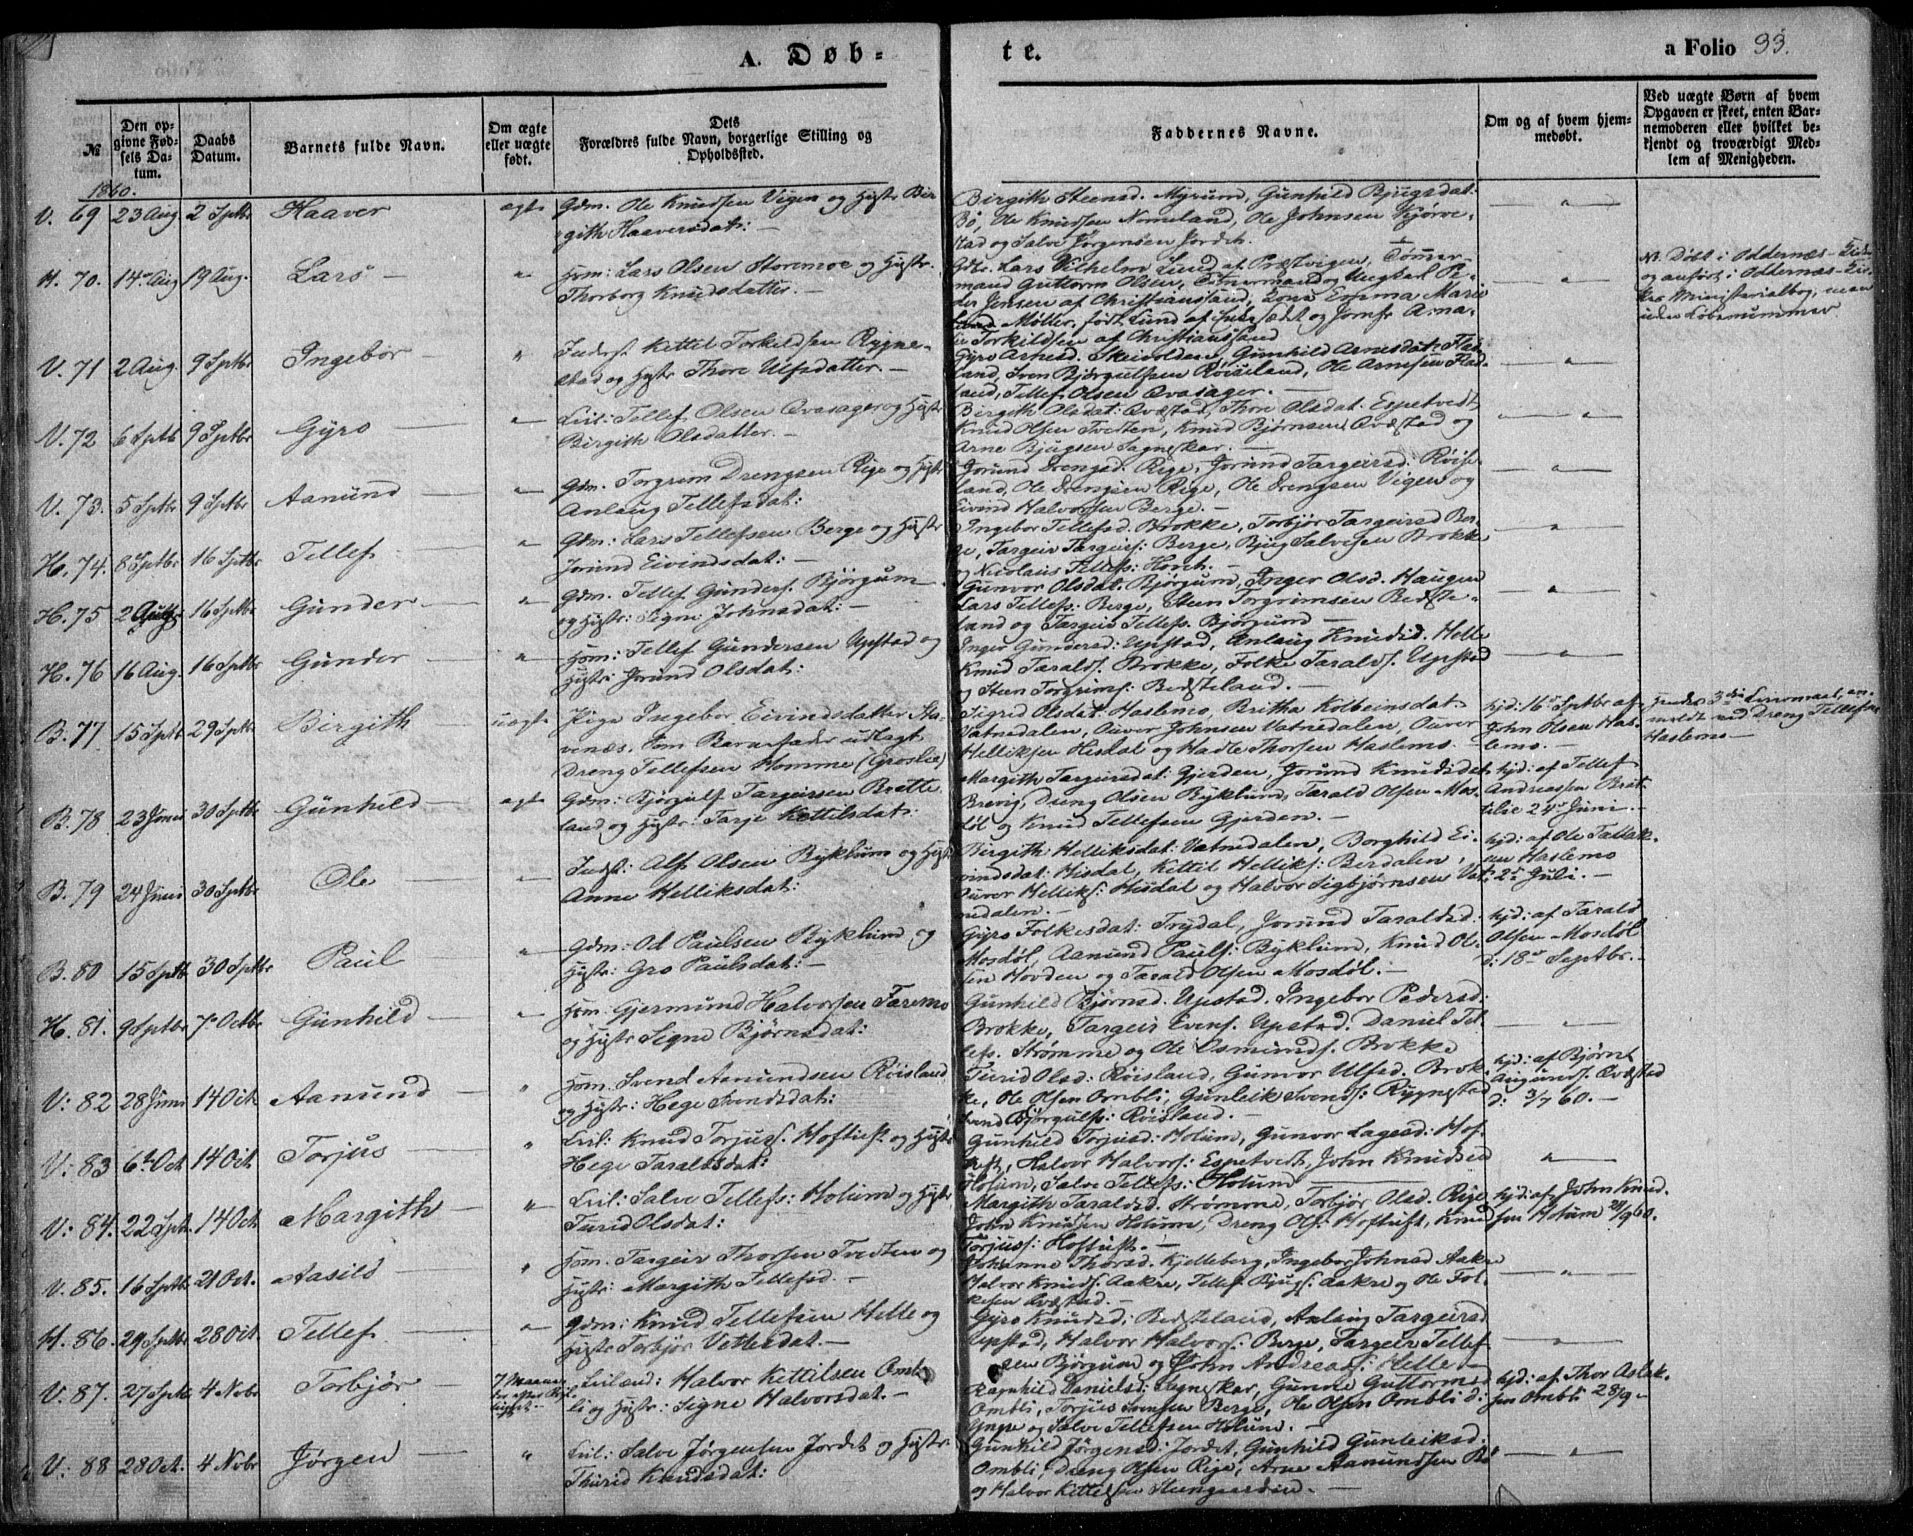 A. Døb-
te.
a Folio 33.
№
Den op-
givne Fød-
sels Da-
tum.
Daabs
Datum.
Barnets fulde Navn.
Om ægte
eller uægte
født.
Dets
Forældres fulde Navn, borgerlige Stilling og
Opholdssted.
Faddernes Navne.
Om og af hvem hjem-
medøbt.
Ved uægte Børn af hvem
Opgaven er skeet, enten Bar-
nemoderen eller hvilket be-
kjendt og troværdigt Med-
lem af Menigheden.
1860.
V. 69 23 Aug 2 Sptbr Haaver ægte Gdm. Ole Knudsen Vigen og Hustr Bir-
gith Haaversdat: —
Birgith Steensd. Myrum, Gunhild Bjugsdat:
Bö, Ole Knudsen Nomeland, Ole Johnsen Kjørve-
stad og Salve Jørgensen Jordet.
H. 70. 14 Aug 19 Aug. Lars — " Hsm: Lars Olsen Storemoe og Hustr.
Thorborg Knudsdatter. —
Gdb. Lars Vilhelm Lund af Præstvigen, Tömmer-
mand Guttorm Olsen, Tömermand og Ungkarl Pe-
der Jensen af Christianssand, Kone Emma Marie
Møller, født Lund af og Jomfr Ama-
lie Torkildsen af Christianssand
N. Döbt i Oddernæs-Kirke
og anført i Oddernæs-Kir-
kes Ministerialbog, men
uden Löbenummer
V. 71 2 Aug. 9 Sptbr Ingebor — " Inderst Kettil Torkildsen Rygne-
stad og Hustr Thore Ulfsdatter. —
Gyro Arnesd. Skeivoldsen, Gunhild Arnesdat: Flad-
land, Sven Bjørgulfsen Röiseland, Ole Arnesen Flad-
land, Tellef Olsen Qvasager. —
V. 72 6 Sptb 9 Sptbr Gyro — " Lril: Tellef Olsen Qvasager og Hustr
Birgith Olsdatter. —
Birgith Olsdat: Qvæstad, Thore Olsdat: Espetvedt
Knud Olsen Tvedten, Knud Bjørnsen Qvæstad og
Arne Bjugsen Sagneskar. —
V. 73. 5 Sptbr 9 Sptbr Aanund — " Gdm. Torgrim Drengsen Rige og Hustr
Anlaug Tellefsdat:
Jorund Drengsd. Rige, Jorund Targeirsd: Röise-
land, Ole Drengsen Rige, Ole Drengsen Vigen og
Eivind Halvorsen Berge. —
H. 74. 8 Sptbr 16 Sptbr Tellef — " Gdm: Lars Tellefsen Berge og Hustr
Jorund Eivindsdat: —
Ingebor Tellefsd. Brokke, Torbjör Targeirsd Ber-
ge, Targeir Targeirs: Berge, Bjug Salvesen Brokke
og Nicolaus Tellefs: Hovet. —
H. 75 2 16 Sptbr Gunder — " Gdm. Tellef Gunders. Bjørgum —
og Hustr: Signe Johnsdat: —
Gunvor Olsdat: Bjørgum, Inger Olsd. Haugen
Lars Tellefs: Berge, Steen Torgrimsen Bedste-
land og Targeir Tellefs. Bjørgum —
H. 76 16 Aug. 16 Sptbr Gunder — " Hsm: Tellef Gundersen Upstad og
Hustr: Jorund Olsdat:
Inger Gundersd: Upstad, Anlaug Knudsd. Helle
Knud Taralds. Brokke, Folke Taralds. Upstad
og Steen Torgrims: Bedsteland. —
B. 77 15 Sptb 29 Sptbr Birgith — uægte Pige Ingebor Eivindsdatter Sta-
venæs. Som Barnefader udlagt
Dreng Tellefsen Homme (Groslie)
Sigrid Olsdat: Haslemo, Britha Kolbeinsdat:
Vatnedalen, Ouver Johnsen Vatnedalen, Ouver
Helliksen Hisdal og Hadle Thorsen Haslemo.
hjd: 16 Sptbr af
John Olsen Has-
lemo. —
Hendes 3die Leiermaal, an-
meldt ved Dreng Tellefsen
Haslemo —
B. 78 23 Juni 30 Sptbr Günhild — ægte Gdm: Bjørgulf Targeirsen Bratte-
land og Hustr: Targe Kettilsdat:
Margith Targeirsdat: Gjerden, Jorund Knudsdat
Breivig, Dreng Olsen Byklum, Tarald Olsen Mos-
döl og Knud Tellefsen Gjerden. —
hjd: af Tellef
Andreassen Brat-
telie 24 Juni —
B. 79 24 Juni 30 Sptbr Ole — Indst: Alf Olsen Byklum og Hust
Anne Helliksdat:
Birgith Helliksdat: Vatnedalen, Borghild Ei-
vindsdat: Hisdal, Kettil Helliks: Berdalen,
Ouver Helliks: Hisdal og Halvor Sigbjørnsen Vat-
nedalen. —
hjd: af Ole Tallak-
sen Haslemo
2 Juli. —
B. 80 15 Sptb 30 Sptbr Paul " Gdm: Od Paulsen Byklum og
Hustr: Gro Paulsdat: —
Gyro Folkesdat: Trydal, Jorund Taraldsd:
Mosdöl, Aanund Pauls: Byklum, Knud Ol-
sen Hovden og Tarald Olsen Mosdöl. —
hjd: af Tarald
Olsen Mosdöl
d: 18 Septbr. —
H. 81. 9 Sptbr 7 Octbr Günhild — " Hsm: Gjermund Halvorsen Faremo
og Hustr Signe Bjørnsdat:
Gunhild Bjørnsd. Upstad. Ingebor Pedersd:
Brokke, Targeir Evens. Upstad. Daniel Tel-
lefs. Strömme og Ole Osmunds. Brokke
V: 82 28 Juni 14 Oct. Aamund — " Hsm. Svend Aamundsen Röisland
og Hustr: Hege Svendsdat:
Turid Olsd: Röisland, Gunvor Ulfsd. Brok-
ke, Ole Olsen Ombli, Gunleik Svends: Rygnestad
Svend Bjørgulfs: Röisland. —
hjd: af Bjørn
Augunds. Qvæstad
d: 3/7 60. —
V: 83 6 Oct 14 Oct Torjus — " Lril: Knud Torjuss. Hoftuft og Hustr
Hege Taraldsdat:
Gunhild Torjusd: Holum, Gunvor Lagesd: Hof-
tuft, Halvor Halvors: Espetvedt, John Knudsen
Holum, Salve Tellefs: Holum
V: 84. 22 Spt. 14 Oct Margith — " Lril: Salve Tellefs: Holum og Hustr
Turid Olsdat:
Margith Taraldsd. Strömme, Torbjör Olsd. Rige
John Knudsen Holum, Dreng Ols: Hoftuft, Knud
Torjuss: Hoftuft. —
hjd: af John Knud-
sen Holum 24/9 60.
V: 85. 16 Sptbr 21 Oct. Aasild — " Hsm. Targeir Thorsen Tvedten og
Hustr: Margith Tellefsd. —
Johanne Thorsd. Kjelleberg, Ingebor Johnsd Aakre
Halvor Knuds: Aakre, Tellef Bjugs: Aakre og Ole Fol-
kesen Qvæstad. —
H. 86. 29 Sptbr 28 Oct. Tellef — " Gdm: Knud Tellefsen Helle og
Hustr Torbjör Vettersdat. —
Gyro Knudsd: Bedsteland, Anlaug Targeirsd
Upstad, Halvor Halvors: Berge, Targeir Tellef-
sen Bjørgum og John Andreas: Helle —
V: 87. 27 Sptb 4 Nobr Torbjör — 7 Maane-
der efter Bryl-
luppet. — Leilænd: Halvor Kettilsen Omb-
li og Hustr: Signe Halvorsdat. —
Ragnhild Daniels: Sagneskar, Gunne Guttormsd
Ombli, Torjus Svensen Berge, Ole Olsen Ombli d:
Ynge og Salve Tellefsen Holum.
hjd: af Thor Aslak-
sen Ombli 28/9 —
V: 88 28 Oct. 4 Nobr Jörgen — " Lril: Salve Jörgensen Jordet og Hustr.
Thurid Knudsdat:
Gunhild Jörgensd: Jordet, Gunhild Gunleiksd:
Ombli, Dreng Olsen Rige, Arne Aamundsen Bö
og Halvor Kettilsen Steengaarden. —